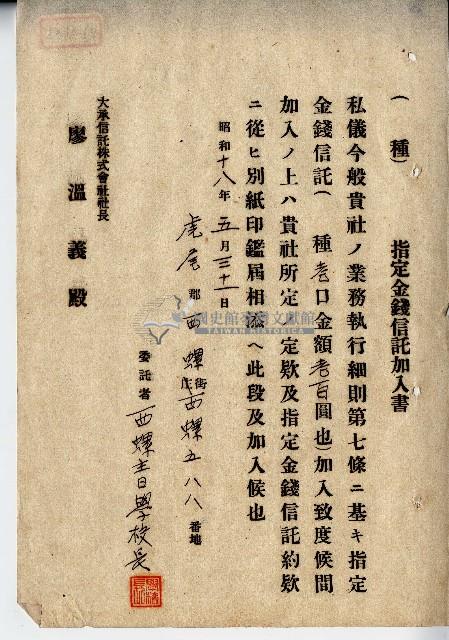 指定金錢信託加入書
(　種)
私儀今般貴社ノ業務執行細則第七條ニ基キ指定
金錢信託(　種壱口金額壱百圓也)加入致度候間
加入ノ上ハ貴社所定ノ定款及指定金錢信託約款
ニ從ヒ別紙印鑑屆相添ヘ此段及加入候也
昭和十八年五月三十一日
虎尾郡西螺街庄西螺五八八番地
委託者 西螺青學校長
大承信託株式會社社長
廖溫義殿
國史館臺灣文獻館
TAIWAN HISTORICA